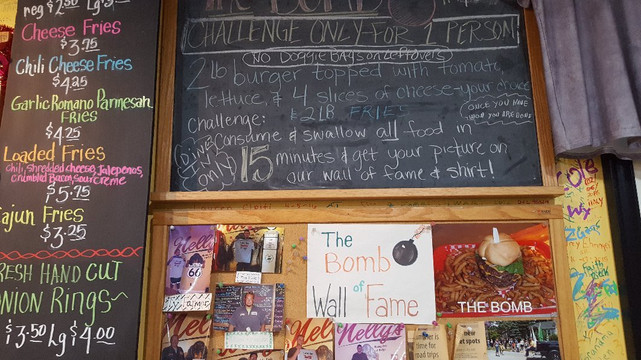 reg $2.50 Lg $3.
Cheese Fries
$3.75
Chili Cheese Fries
$4.25
Garlic Romano Parmesan
FRIES
$4.25
Loaded Fries
Chili, shredded cheese, Jalepenos,
crumbled Bacon, sour creme
$5.75
Cajun Fries
$3.25
FRESH HAND CUT
ONION Rings~
$3.50 Lg $4.00
The Bomb
CHALLENGE ONLY-FOR 1 PERSON
NO DOGGIE BAGS on Leftovers
2 lb burger topped with tomato,
lettuce, & 4 slices of cheese-your choice
Challenge: & 2 LB FRIES
ONCE YOU MOVE
YOUR DONE
DINE
IN
ONLY
Consume & swallow all food in
15 minutes & get your picture on
our wall of fame & shirt!
The
Bomb
of
Wall Fame
THE BOMB
Nelly's
66
Nelly's
summer is
time for
road trips
new
et spots